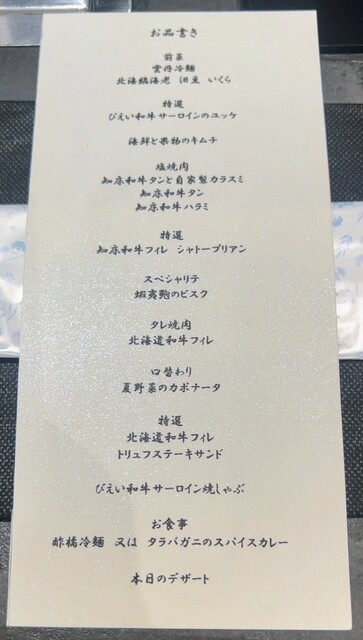 お品書き
前菜
雲丹冷麺
北海縞海老 汨豆 いくら
特選
びえい和牛サーロインのユッケ
海鮮と果物のキムチ
塩焼肉
知床和牛タンと自家製カラスミ
知床和牛タン
知床和牛ハラミ
特選
知床和牛フィレ シャトーブリアン
スペシャリテ
蝦夷鮑のビスク
タレ焼肉
北海道和牛フィレ
口替わり
夏野菜のカポナータ
特選
北海道和牛フィレ
トリュフステーキサンド
びえい和牛サーロイン焼しゃぶ
お食事
酢橘冷麺 又は タラバガニのスパイスカレー
本日のデザート